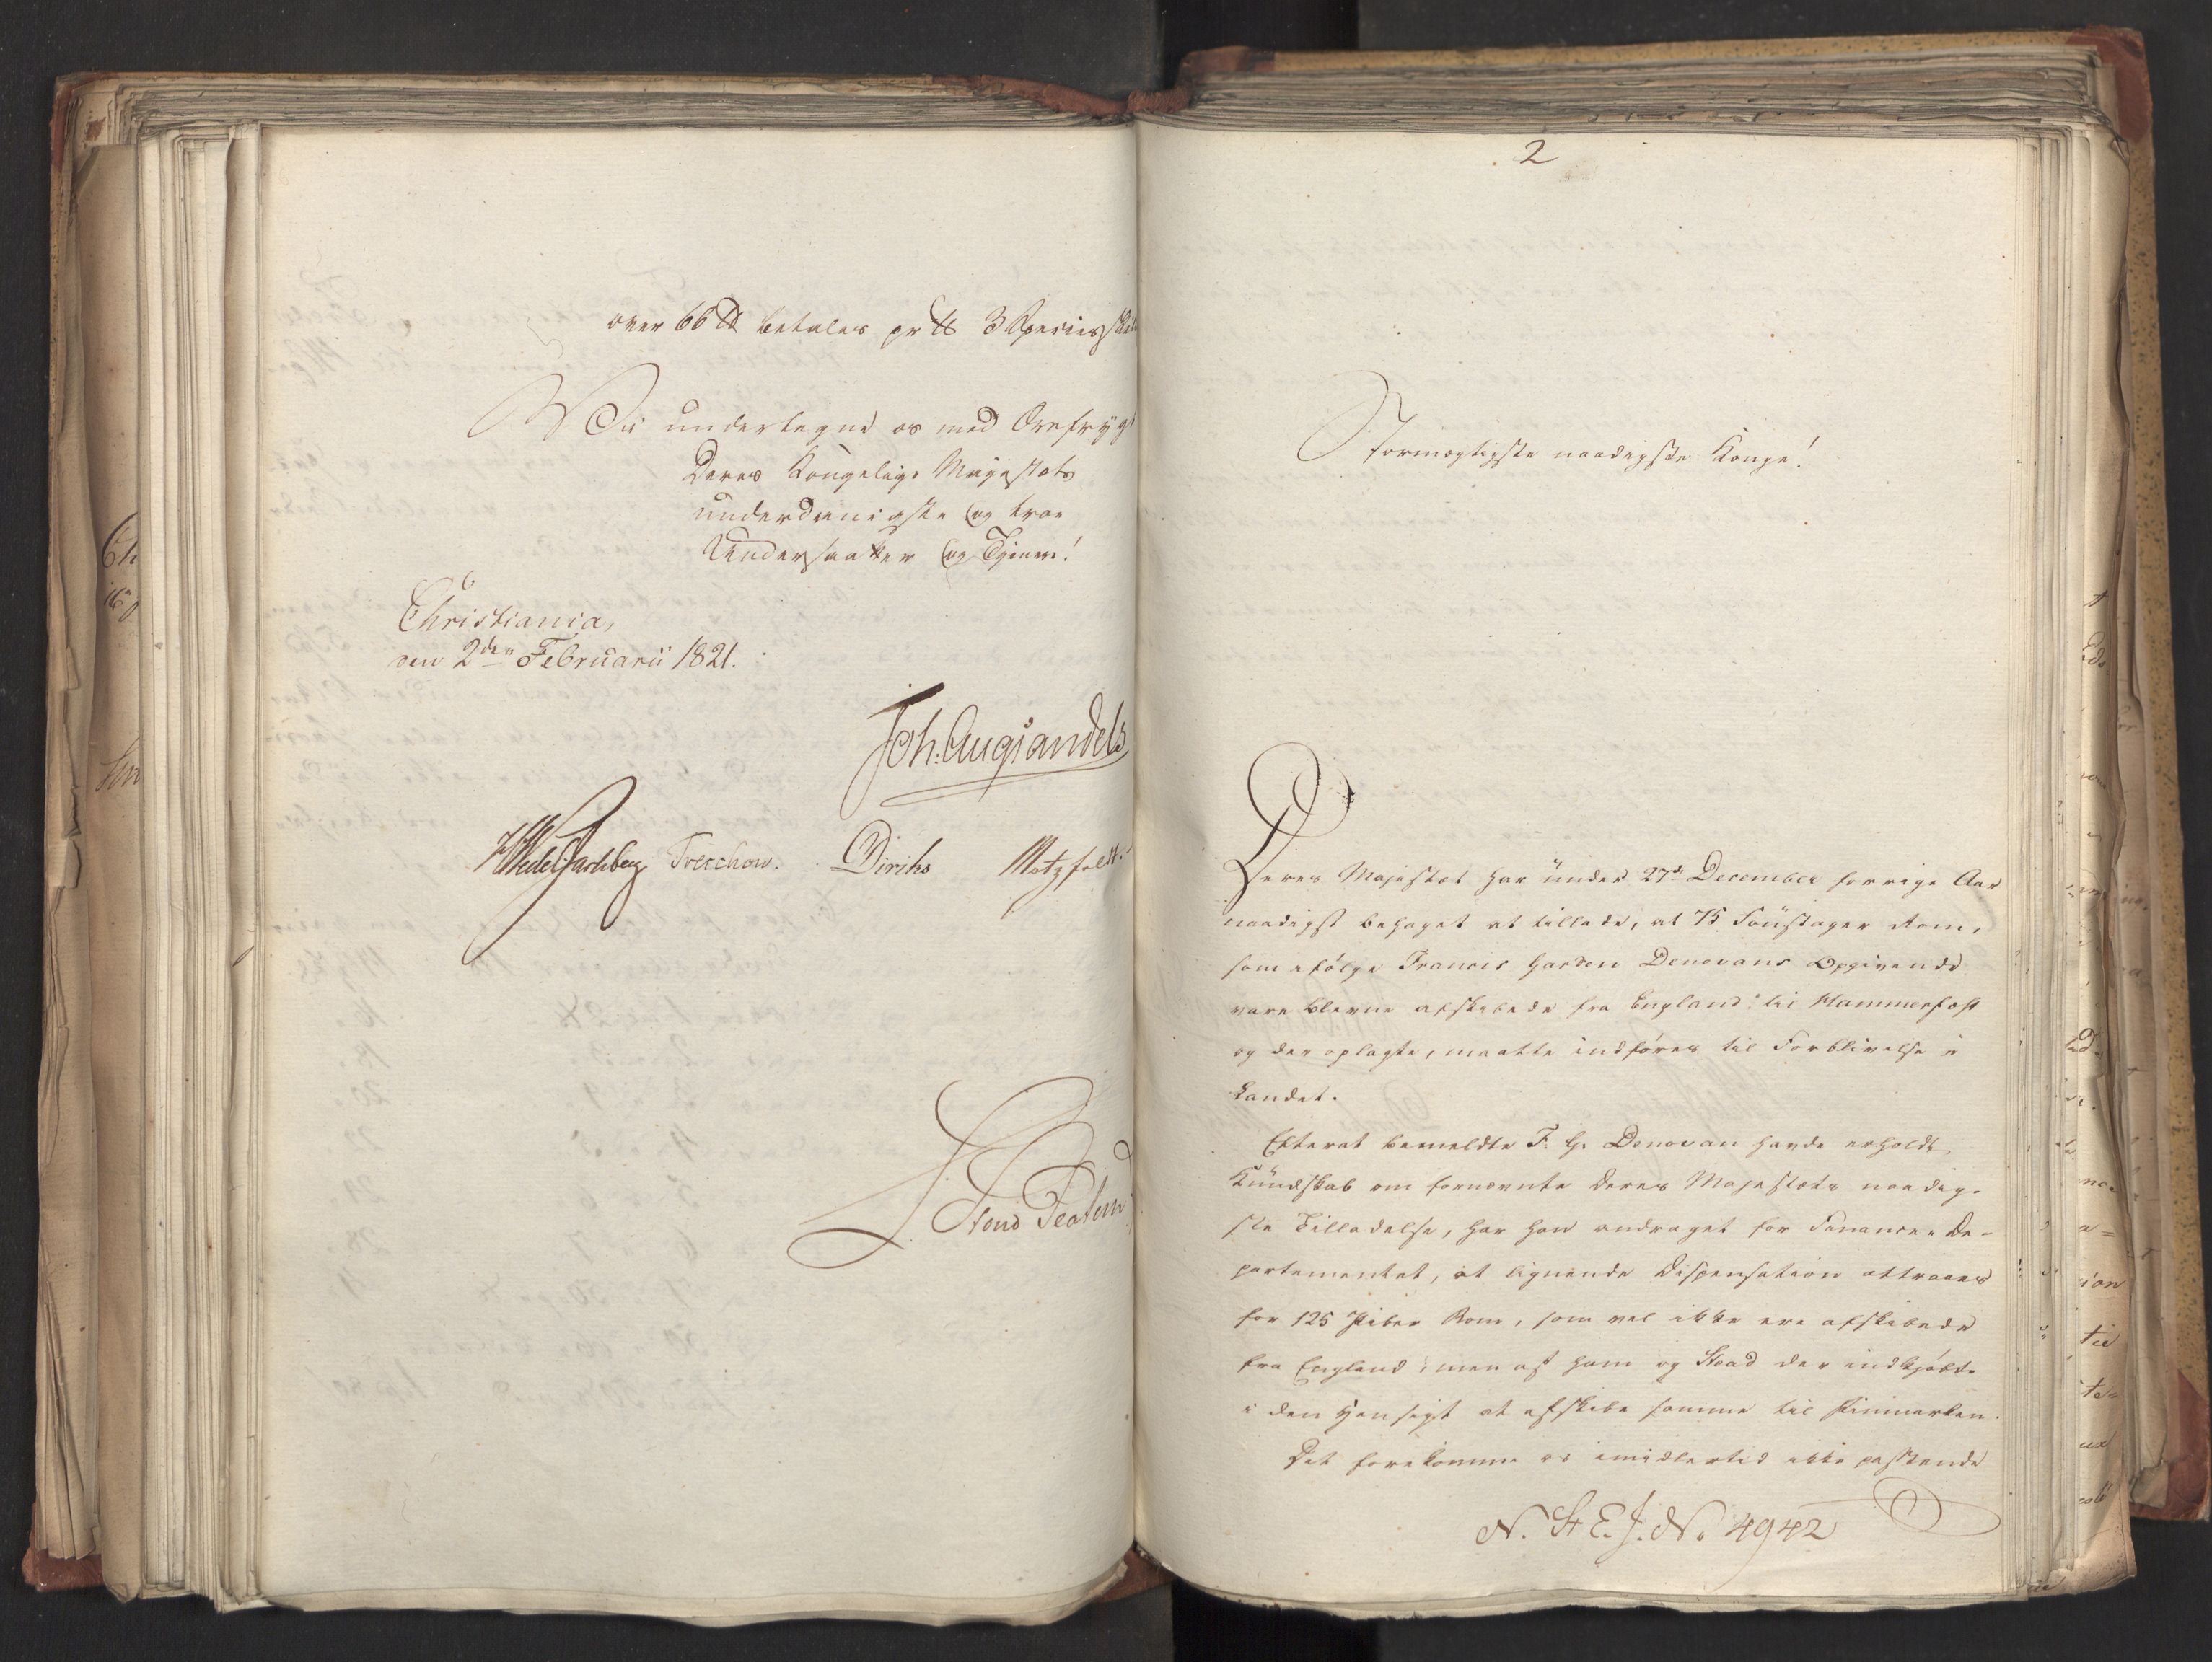 over 66 ℔ betales pr ℔ 3 Speciesskill
Vi undertegne os med Ærefrygt
Deres Kongelige Majestæts
underdanigste og troe
Undersaatter og Tjenere!
Christiania,
den 2den Februarii 1821.
Joh: Aug Sandels
HWedel Jarlsberg Treschow. Diriks Motzfeldt.
2
Stormægtigste naadigste Konge!
Deres Majestæt har under 27de December forrige Aar
naadigst behaget at tillade, at 75 Foustager Rom,
som ifölge Francis Garden Donovans Opgivende
vare blevne afskibede fra England til Hammerfest
og der oplagte, maatte indföres til Forblivelse i
Landet.
Efterat bemeldte F. G. Donovan havde erholdt
Kundskab om fornævnte Deres Majestæts naadig-
ste Tilladelse, har han andraget for Finance De-
partementet, at lignende Dispensation attraaes
for 125 Piber Rom, som vel ikke ere afskibede
fra England, men af ham og Stead der indkjöbt
i den Hensigt at afskibe samme til Finmarken.
Det forekommer os imidlertid ikke passende
N. St E. J. No 4942